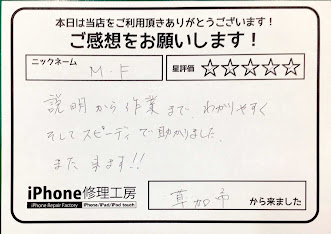 本日は当店をご利用頂きありがとうございます!
ご感想をお願いします!
ニックネーム M.F 星評価 ☆☆☆☆☆
説明から作業まで、わかりやすく
そしてスピーディで助かりました。
また来ます!!
iPhone修理工房
iPhone Repair Factory iPhone/iPad/iPod touch
草加市 から来ました